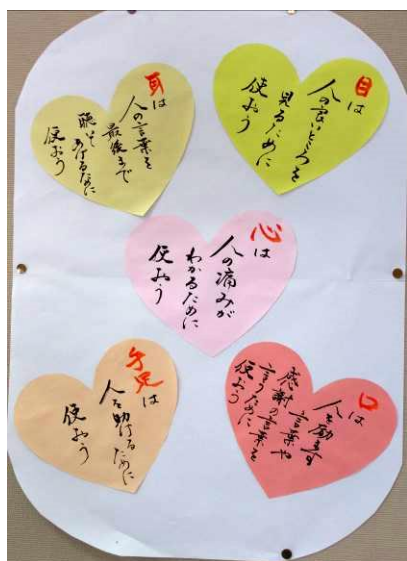 目は
人の良いところを
見るために
使おう
耳は
人の言葉を
最後まで
聴いて
あげるために
使おう
心は
人の痛みが
わかるために
使おう
口は
人を励ます
言葉や
感謝の言葉を
言うために
使おう
手足は
人を助けるために
使おう